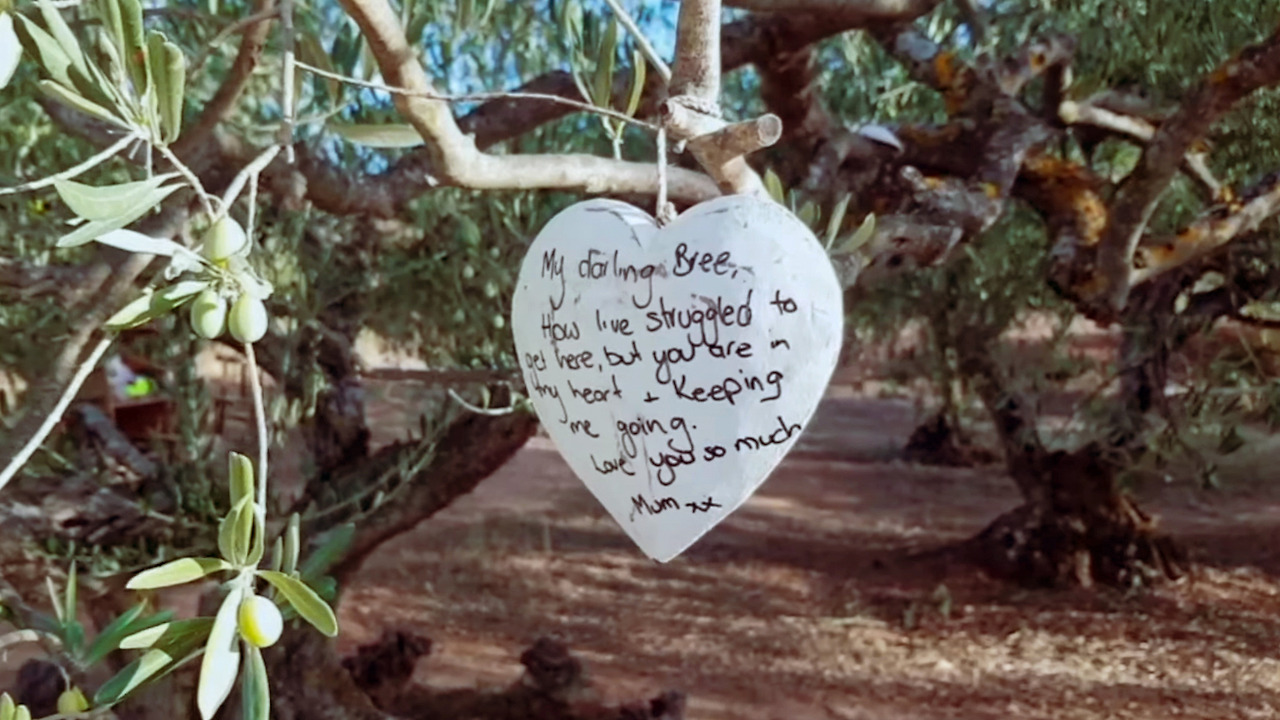 My darling Bree,
How I've struggled to
get here, but you are in
my heart + Keeping
me going.
Love you so much
Mum xx